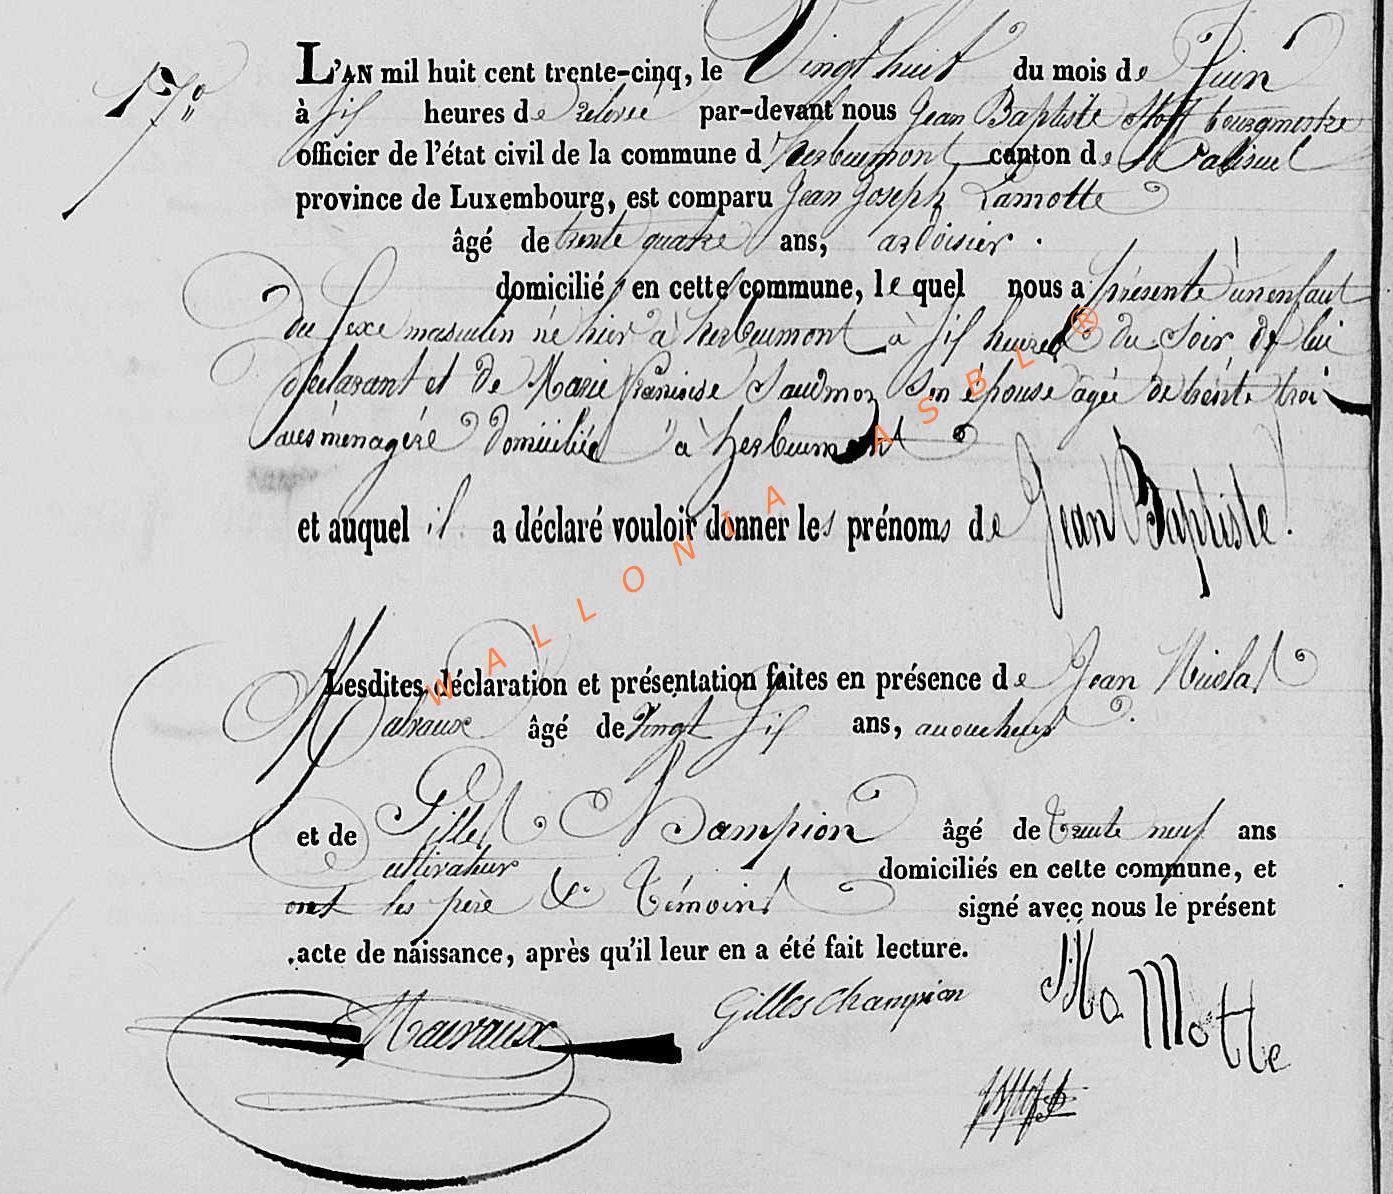 17°
L'AN mil huit cent trente-cinq, le Vingt huit du mois de Juin
à six heures de relevée par-devant nous Jean Baptiste bourgmestre
officier de l'état civil de la commune d'herbeumont canton de Paliseul
province de Luxembourg, est comparu Jean Joseph Lamotte
âgé de trente quatre ans, ardoisier.
domicilié en cette commune, lequel nous a présenté un enfant
du sexe masculin né hier à herbeumont à six heures du Soir, de lui
déclarant et de Marie françoise Saudmon Son épouse agée de trente troi
ans ménagère domiciliée à herbeumont
et auquel il a déclaré vouloir donner les prénoms de Jean Baptiste.
Lesdites déclaration et présentation faites en présence de Jean Nicolas
Malvaux âgé de Vingt Six ans, accoucheur
et de Gilles Champion âgé de trente neuf ans
cultivateur domiciliés en cette commune, et
ont les père & témoins signé avec nous le présent
acte de naissance, après qu'il leur en a été fait lecture.
Malvaux Gilles Champion La Motte
WALLONIA ASBL ®